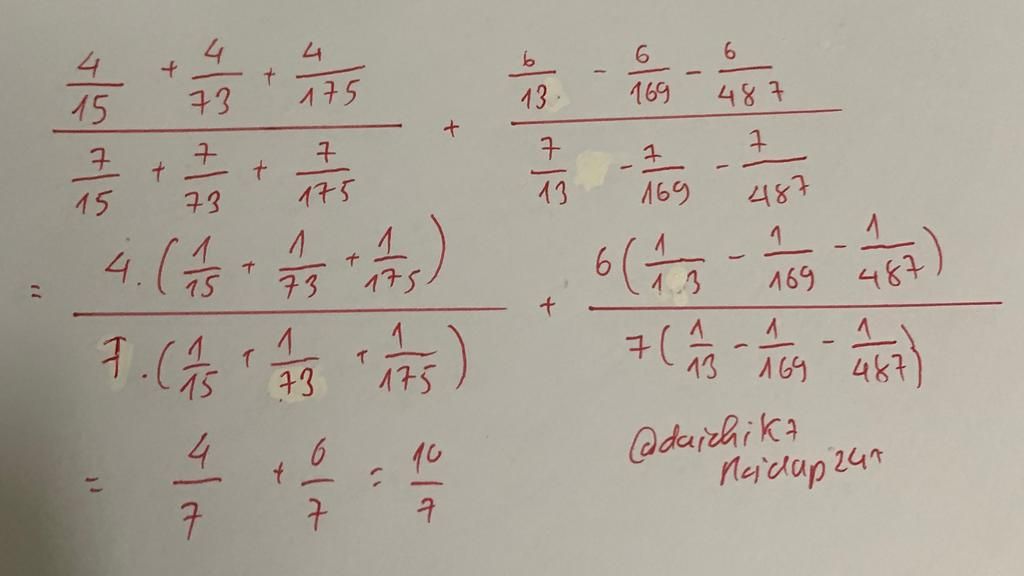 4/15 + 4/73 + 4/175 / 7/15 + 7/73 + 7/175 + 6/13 - 6/169 - 6/487 / 7/13 - 7/169 - 7/487
= 4.(1/15 + 1/73 + 1/175) / 7.(1/15 + 1/73 + 1/175) + 6(1/13 - 1/169 - 1/487) / 7(1/13 - 1/169 - 1/487)
= 4/7 + 6/7 = 10/7
@daichik7